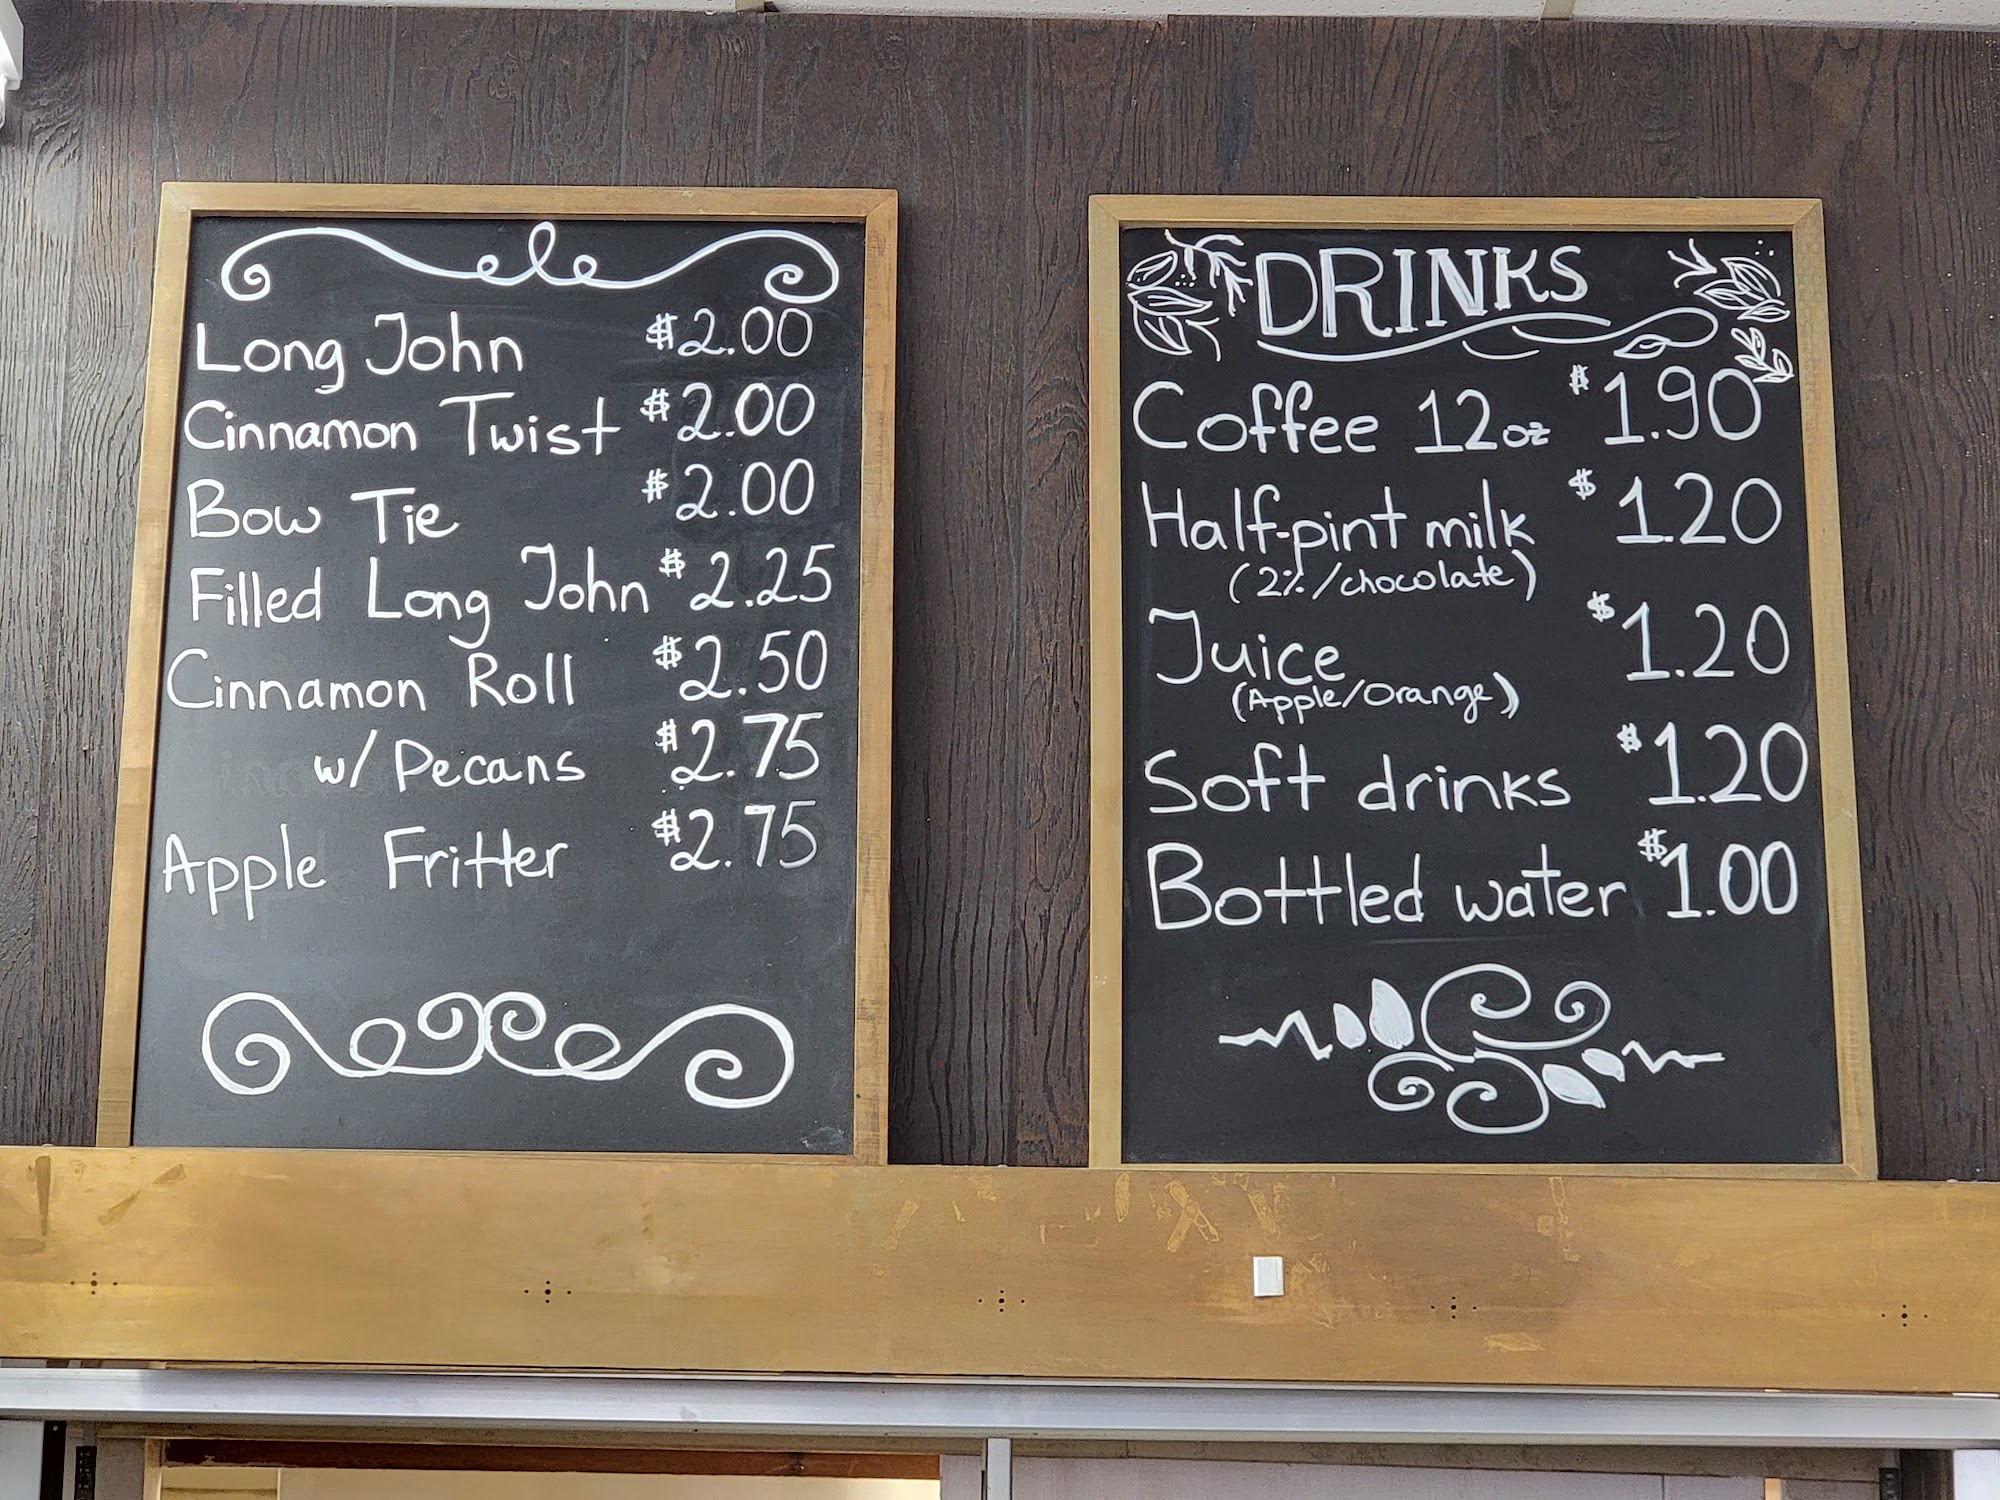 Long John $2.00
Cinnamon Twist $2.00
Bow Tie $2.00
Filled Long John $2.25
Cinnamon Roll $2.50
w/ Pecans $2.75
Apple Fritter $2.75
DRINKS
Coffee 12oz $1.90
Half-pint milk $1.20
(2%/chocolate)
Juice $1.20
(Apple/Orange)
Soft drinks $1.20
Bottled water $1.00